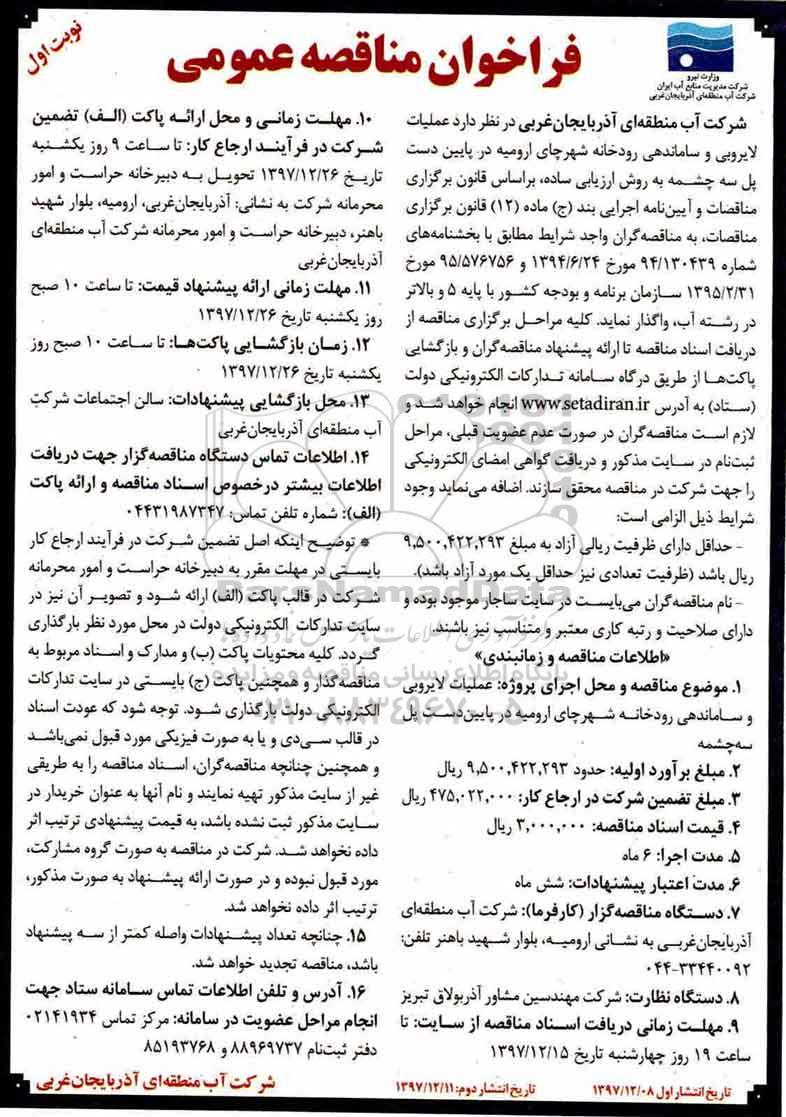 نوبت اول
فراخوان مناقصه عمومی
وزارت نیرو
شرکت مدیریت منابع آب ایران
شرکت آب منطقه‌ای آذربایجان‌غربی
شرکت آب منطقه‌ای آذربایجان‌غربی در نظر دارد عملیات
لایروبی و ساماندهی رودخانه شهرچای ارومیه در پایین دست
پل سه چشمه به روش ارزیابی ساده، براساس قانون برگزاری
مناقصات و آیین‌نامه اجرایی بند (ج) ماده (۱۲) قانون برگزاری
مناقصات، به مناقصه‌گران واجد شرایط مطابق با بخشنامه‌های
شماره ۹۴/۱۳۰۴۳۹ مورخ ۱۳۹۴/۶/۲۴ و ۹۵/۵۷۶۷۵۶ مورخ
۱۳۹۵/۲/۳۱ سازمان برنامه و بودجه کشور با پایه ۵ و بالاتر
در رشته آب، واگذار نماید. کلیه مراحل برگزاری مناقصه از
دریافت اسناد مناقصه تا ارائه پیشنهاد مناقصه‌گران و بازگشایی
پاکت‌ها از طریق درگاه سامانه تدارکات الکترونیکی دولت
(ستاد) به آدرس www.setadiran.ir انجام خواهد شد و
لازم است مناقصه‌گران در صورت عدم عضویت قبلی، مراحل
ثبت‌نام در سایت مذکور و دریافت گواهی امضای الکترونیکی
را جهت شرکت در مناقصه محقق سازند. اضافه می‌نماید وجود
شرایط ذیل الزامی است:
- حداقل دارای ظرفیت ریالی آزاد به مبلغ ۹,۵۰۰,۴۲۲,۲۹۳
ریال باشد (ظرفیت تعدادی نیز حداقل یک مورد آزاد باشد).
- نام مناقصه‌گران می‌بایست در سایت ساجار موجود بوده و
دارای صلاحیت و رتبه کاری معتبر و متناسب نیز باشند.
«اطلاعات مناقصه و زمانبندی»
۱. موضوع مناقصه و محل اجرای پروژه: عملیات لایروبی
و ساماندهی رودخانه شهرچای ارومیه در پایین‌دست پل
سه‌چشمه
۲. مبلغ برآورد اولیه: حدود ۹,۵۰۰,۴۲۲,۲۹۳ ریال
۳. مبلغ تضمین شرکت در ارجاع کار: ۴۷۵,۰۲۲,۰۰۰ ریال
۴. قیمت اسناد مناقصه: ۳,۰۰۰,۰۰۰ ریال
۵. مدت اجرا: ۶ ماه
۶. مدت اعتبار پیشنهادات: شش ماه
۷. دستگاه مناقصه‌گزار (کارفرما): شرکت آب منطقه‌ای
آذربایجان‌غربی به نشانی ارومیه، بلوار شهید باهنر تلفن:
۰۴۴-۳۳۴۴۰۰۹۲
۸. دستگاه نظارت: شرکت مهندسین مشاور آذربولاق تبریز
۹. مهلت زمانی دریافت اسناد مناقصه از سایت: تا
ساعت ۱۹ روز چهارشنبه تاریخ ۱۳۹۷/۱۲/۱۵
۱۰. مهلت زمانی و محل ارائه پاکت (الف) تضمین
شرکت در فرآیند ارجاع کار: تا ساعت ۹ روز یکشنبه
تاریخ ۱۳۹۷/۱۲/۲۶ تحویل به دبیرخانه حراست و امور
محرمانه شرکت به نشانی: آذربایجان‌غربی، ارومیه، بلوار شهید
باهنر، دبیرخانه حراست و امور محرمانه شرکت آب منطقه‌ای
آذربایجان‌غربی
۱۱. مهلت زمانی ارائه پیشنهاد قیمت: تا ساعت ۱۰ صبح
روز یکشنبه تاریخ ۱۳۹۷/۱۲/۲۶
۱۲. زمان بازگشایی پاکت‌ها: تا ساعت ۱۰ صبح روز
یکشنبه تاریخ ۱۳۹۷/۱۲/۲۶
۱۳. محل بازگشایی پیشنهادات: سالن اجتماعات شرکت
آب منطقه‌ای آذربایجان‌غربی
۱۴. اطلاعات تماس دستگاه مناقصه‌گزار جهت دریافت
اطلاعات بیشتر درخصوص اسناد مناقصه و ارائه پاکت
(الف): شماره تلفن تماس: ۰۴۴۳۱۹۸۷۳۴۷
* توضیح اینکه اصل تضمین شرکت در فرآیند ارجاع کار
بایستی در مهلت مقرر به دبیرخانه حراست و امور محرمانه
شرکت در قالب پاکت (الف) ارائه شود و تصویر آن نیز در
سایت تدارکات الکترونیکی دولت در محل مورد نظر بارگذاری
گردد. کلیه محتویات پاکت (ب) و مدارک و اسناد مربوط به
مناقصه‌گذار و همچنین پاکت (ج) بایستی در سایت تدارکات
الکترونیکی دولت بارگذاری شود. توجه شود که عودت اسناد
در قالب سی‌دی و یا به صورت فیزیکی مورد قبول نمی‌باشد
و همچنین چنانچه مناقصه‌گران، اسناد مناقصه را به طریقی
غیر از سایت مذکور تهیه نمایند و نام آنها به عنوان خریدار در
سایت مذکور ثبت نشده باشد، به قیمت پیشنهادی ترتیب اثر
داده نخواهد شد. شرکت در مناقصه به صورت گروه مشارکت،
مورد قبول نبوده و در صورت ارائه پیشنهاد به صورت مذکور،
ترتیب اثر داده نخواهد شد.
۱۵. چنانچه تعداد پیشنهادات واصله کمتر از سه پیشنهاد
باشد، مناقصه تجدید خواهد شد.
۱۶. آدرس و تلفن اطلاعات تماس سامانه ستاد جهت
انجام مراحل عضویت در سامانه: مرکز تماس ۰۲۱۴۱۹۳۴
دفتر ثبت‌نام ۸۸۹۶۹۷۳۷ و ۸۵۱۹۳۷۶۸
ParsNamadData
پایگاه اطلاع رسانی مناقصه و مزایده
۰۲۱-۸۸۳۴۹۶۷۰-۵
تاریخ انتشار اول ۱۳۹۷/۱۲/۰۸
تاریخ انتشار دوم: ۱۳۹۷/۱۲/۱۱
شرکت آب منطقه‌ای آذربایجان‌غربی